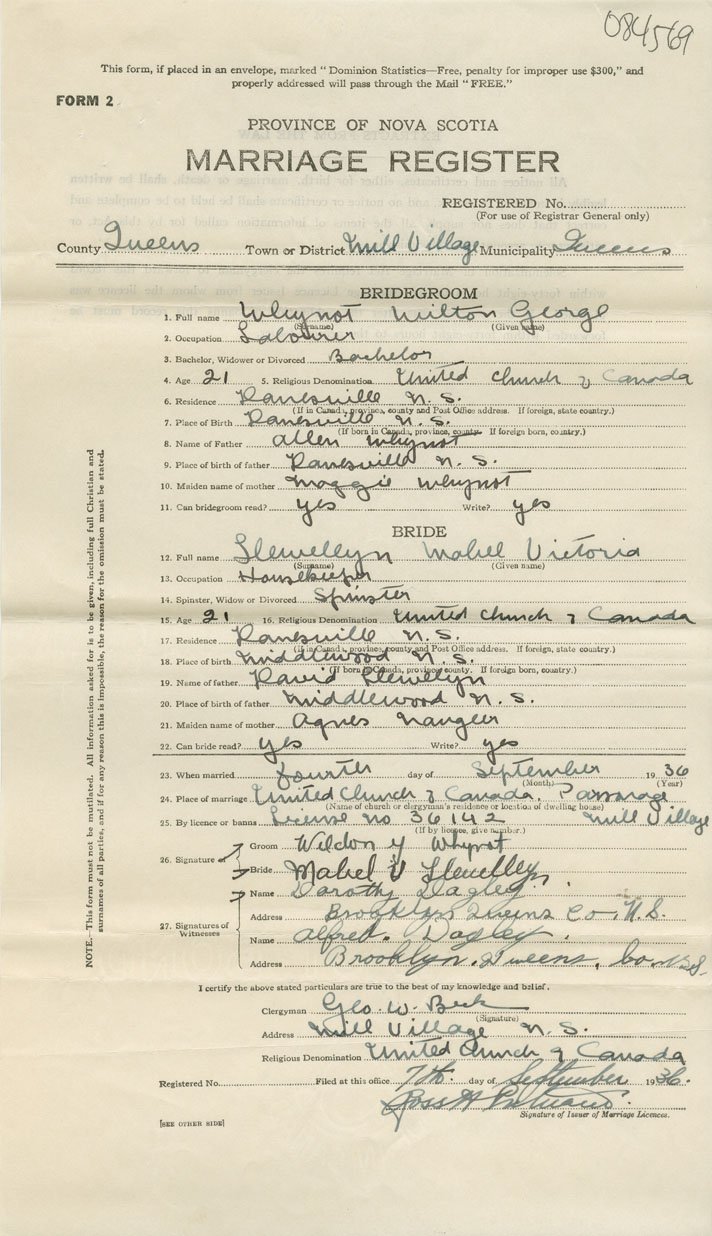 084569
This form, if placed in an envelope, marked "Dominion Statistics—Free, penalty for improper use $300," and
properly addressed will pass through the Mail "FREE."
FORM 2
PROVINCE OF NOVA SCOTIA
MARRIAGE REGISTER
REGISTERED No.
(For use of Registrar General only)
County Queens Town or District Mill Village Municipality Queens
BRIDEGROOM
1. Full name Whynot Milton George
(Surname) (Given name)
2. Occupation Labourer
3. Bachelor, Widower or Divorced Bachelor
4. Age 21 5. Religious Denomination United Church of Canada
6. Residence Danesville N. S.
(If in Canada, province, county and Post Office address. If foreign, state country.)
7. Place of Birth Danesville N. S.
(If born in Canada, province, county. If foreign born, country.)
8. Name of Father Allen Whynot
9. Place of birth of father Danesville N. S.
10. Maiden name of mother Maggie Whynot
11. Can bridegroom read? yes Write? yes
BRIDE
12. Full name Llewellyn Mabel Victoria
(Surname) (Given name)
13. Occupation Housekeeper
14. Spinster, Widow or Divorced Spinster
15. Age 21 16. Religious Denomination United Church of Canada
17. Residence Danesville N. S.
(If in Canada, province, county and Post Office address. If foreign, state country.)
18. Place of birth Middlewood N. S.
(If born in Canada, province, county. If foreign born, country.)
19. Name of father David Llewellyn
20. Place of birth of father Middlewood N. S.
21. Maiden name of mother Agnes
22. Can bride read? yes Write? yes
23. When married fourth day of September 1936
(Month) (Year)
24. Place of marriage United Church of Canada, Parsonage
(Name of church or clergyman's residence or location of dwelling house)
Mill Village
25. By licence or banns License no 36142
(If by licence, give number.)
26. Signature of
Groom Whynot
Bride Mabel V Llewellyn
27. Signatures of Witnesses
Name Dorothy Dagley
Address Brooklyn Queens Co. N.S.
Name Alfred. Dagley.
Address Brooklyn, Queens, Co. N.S.
I certify the above stated particulars are true to the best of my knowledge and belief.
Clergyman Geo. W. Beck
(Signature)
Address Mill Village N. S.
Religious Denomination United Church of Canada
Registered No. Filed at this office 7th. day of September 1936.
Ross H
Signature of Issuer of Marriage Licences.
[SEE OTHER SIDE]
NOTE.—This form must not be mutilated. All information asked for is to be given, including full Christian and
surnames of all parties, and if for any reason this is impossible, the reason for the omission must be stated.